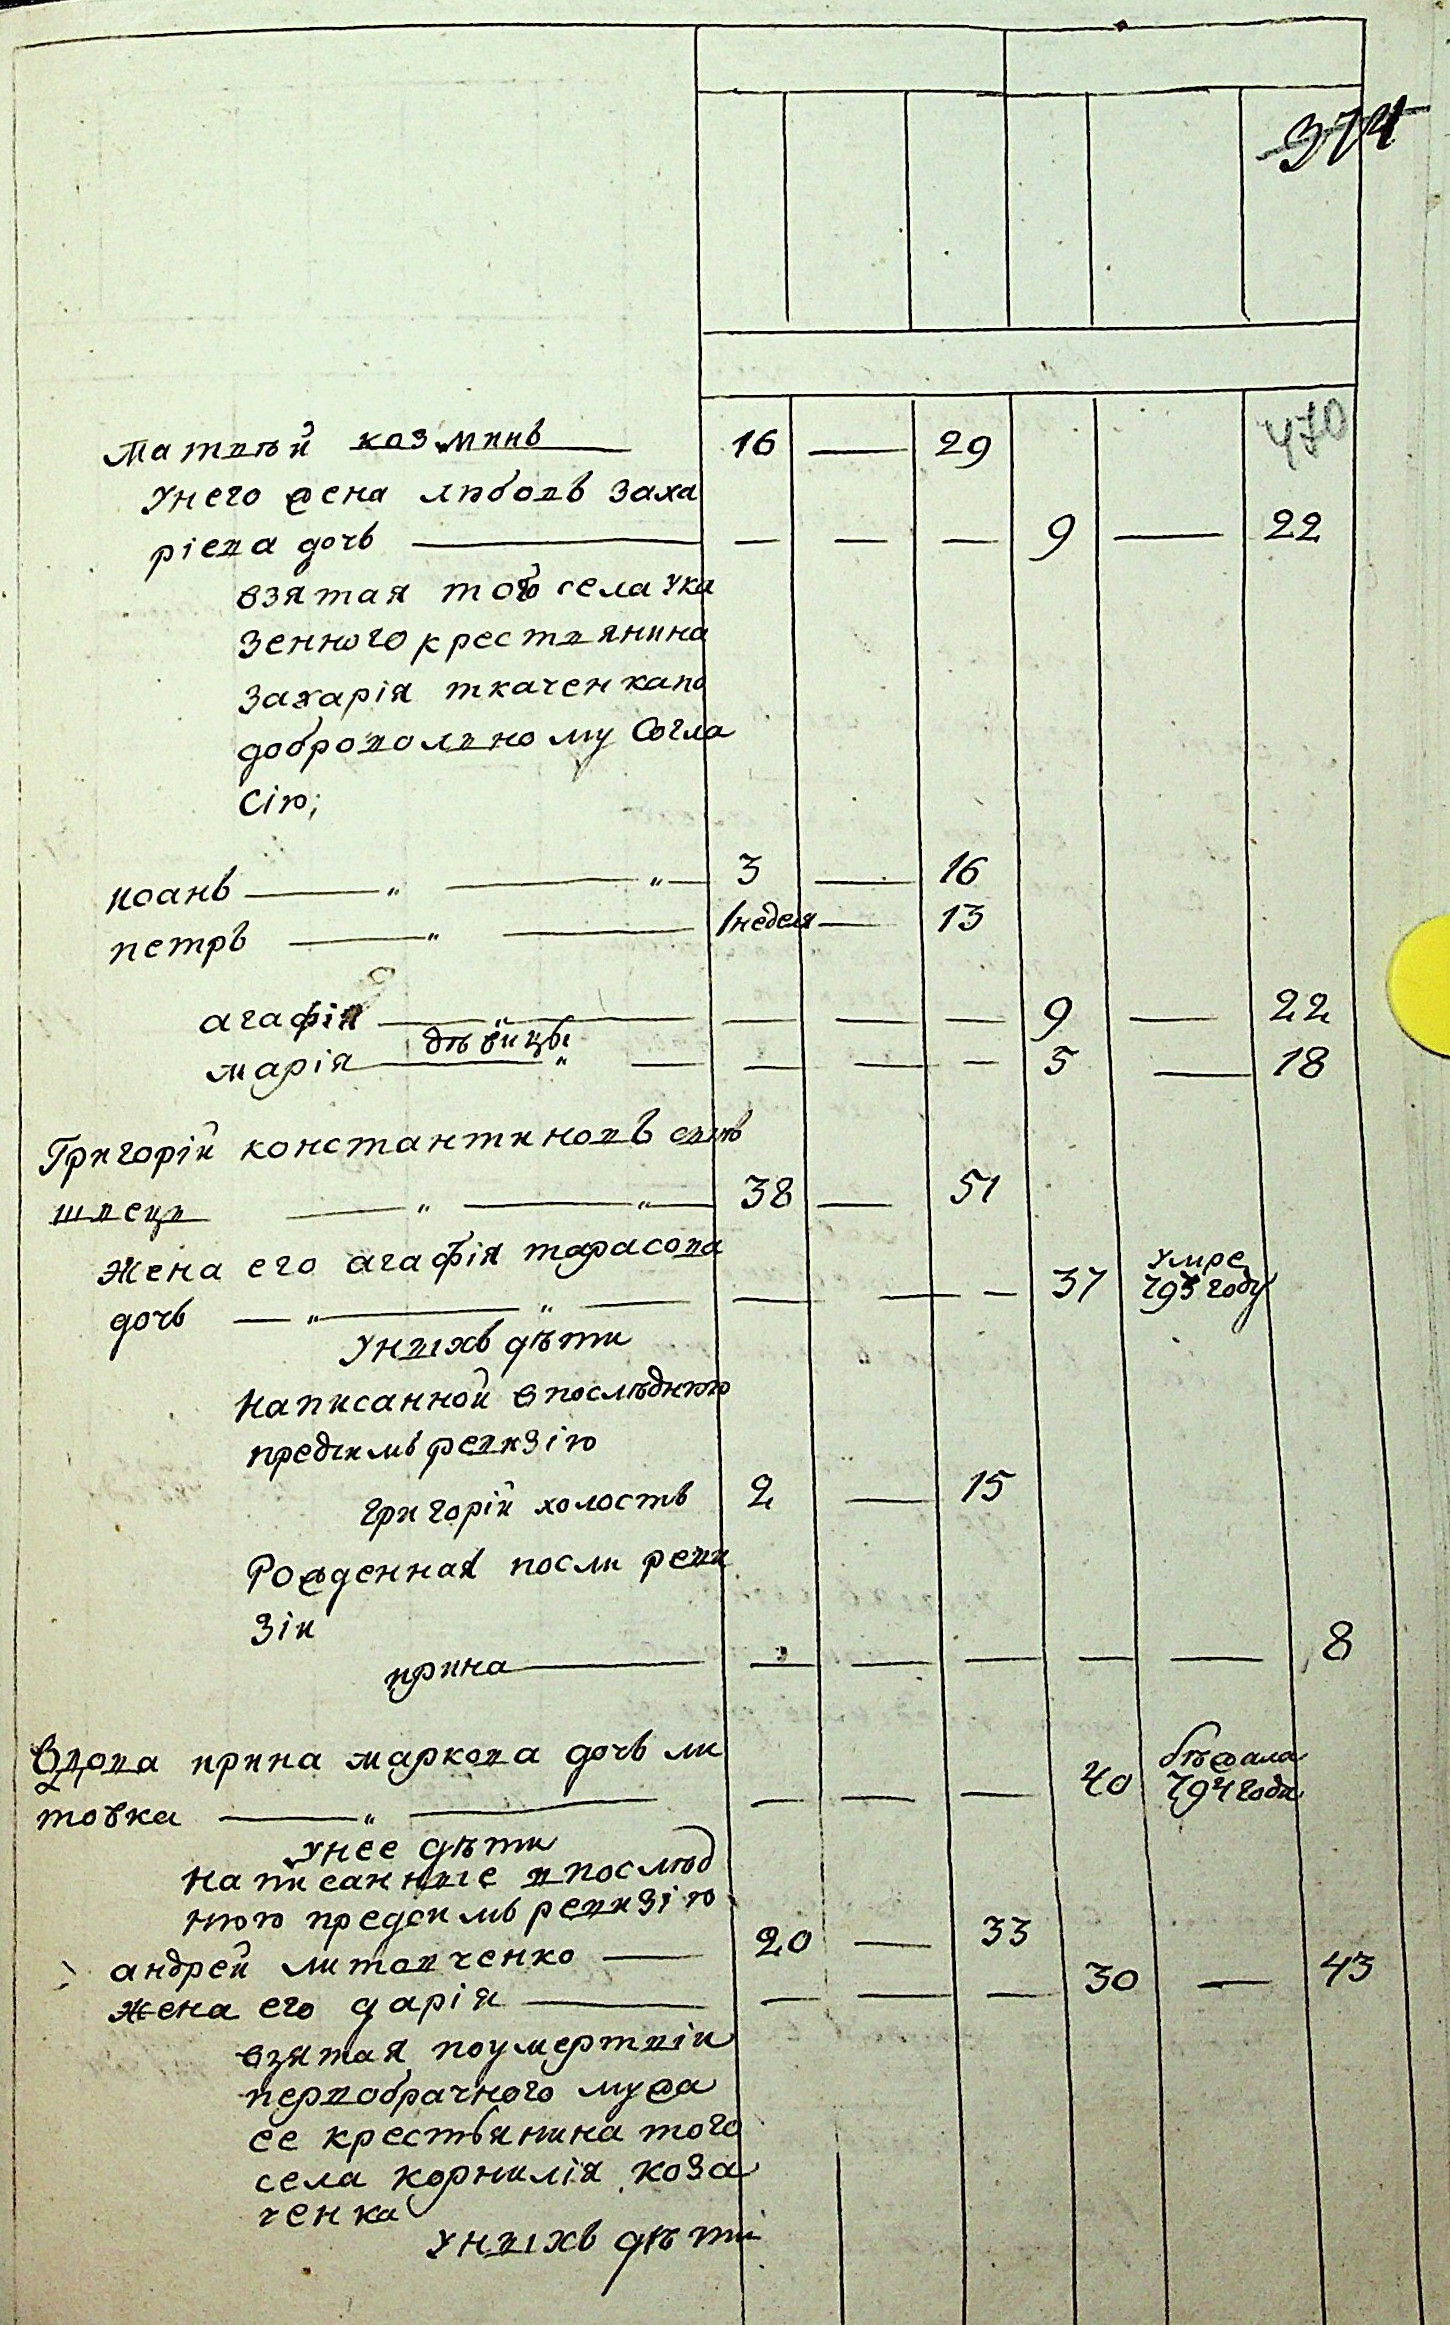 374
470
Матвѣй козминъ 16 — 29
Унего жена любовъ Заха
ріева дочъ — — — — 9 — 22
взятая того села Ука
Зенного крествянина
Захарія ткаченкапо
доброволвному Согла
Сію;
иоанъ — „ — „ — 3 — 16
петръ — „ — 1 неделя — 13
агафія — „ — — — — 9 — 22
дѣвицы
марія — „ — — — — 5 — 18
Григорій константиновъ сынъ
швецъ — „ — „ — 38 — 51
Жена его агафія тарасова Умре
дочъ — „ — „ — — — — 37 793 году
Унихъ дѣти
Написанной впослѣднюю
предсимъ ревизію
григорій холостъ 2 — 15
Рожденная посли реви
Зіи
ирина — — — — — — 8
Вдова ирина маркова дочъ ли бѣжала
товка — „ — — — — 40 794 году
Унее дѣти
Написанные впослѣд
нюю предсимъ ревизію
андрей литовченко — 20 — 33
Жена его дарія — — — — 30 — 43
взятая поумертвіи
первобрачного мужа
ее крестьянина того
села корнилія коза
ченка
Унихъ дѣти